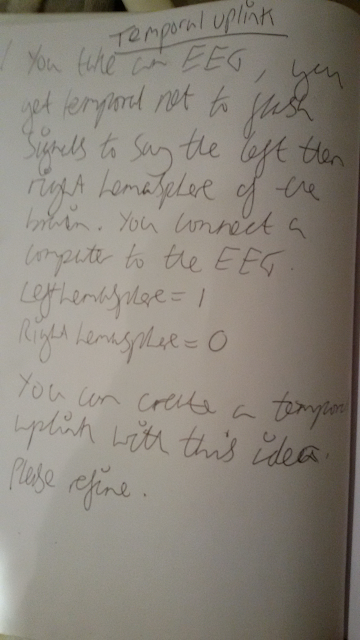 Temporal uplink
You take an EEG, you
get temporal net to flash
signals to say the left then
right hemasphere of the
brain. You connect a
computer to the EEG.
Left hemasphere = 1
Right hemasphere = 0
You can create a tempor
uplink with this idea.
Please refine.